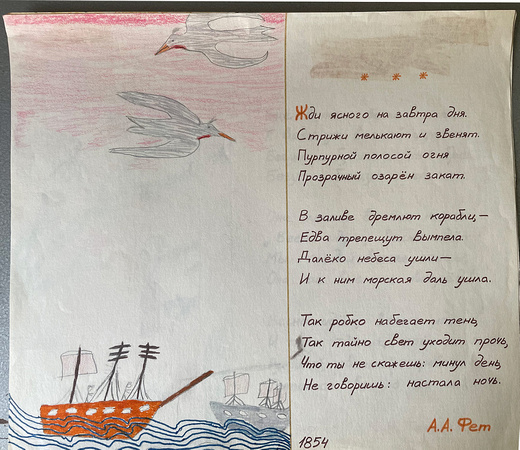 * * *
Жди ясного на завтра дня.
Стрижи мелькают и звенят.
Пурпурной полосой огня
Прозрачный озарён закат.
В заливе дремлют корабли,—
Едва трепещут вымпела.
Далёко небеса ушли—
И к ним морская даль ушла.
Так робко набегает тень,
Так тайно свет уходит прочь,
Что ты не скажешь: минул день,
Не говоришь: настала ночь.
А.А. Фет
1854